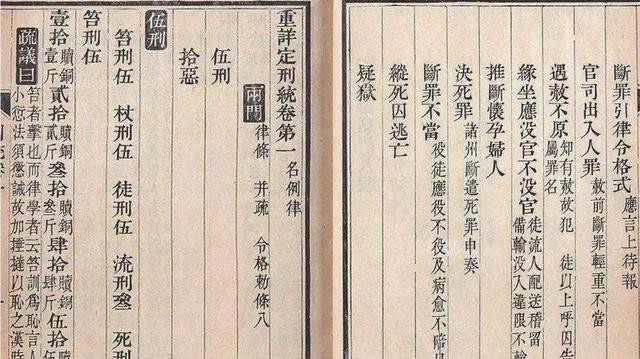 斷罪引律令格式 應言上待報
官司出入人罪 赦前斷罪輕重不當
遇赦不原 知有赦故犯 徒以上呼囚告
屬罪名
緣坐應沒官不沒官 徒流人配送稽留
備輸沒入違限不輸
推斷懷孕婦人
決死罪 諸州斷遣死罪申奏
斷罪不當 役徒應役不役及病愈不
縱死囚逃亡
疑獄
重詳定刑統卷第一 名例律
兩門 律條 并疏 令格勅條八
伍刑
拾惡
伍刑
笞刑伍 杖刑伍 徒刑伍 流刑叁 死刑
笞刑伍
壹拾 贖銅壹斤 貳拾 贖銅貳斤 叁拾 贖銅叁斤 肆拾 贖銅肆斤 伍拾 贖銅
疏議曰 笞者擊也而律學者云笞訓為恥言人
小愆法須懲誡故加捶撻以恥之漢時